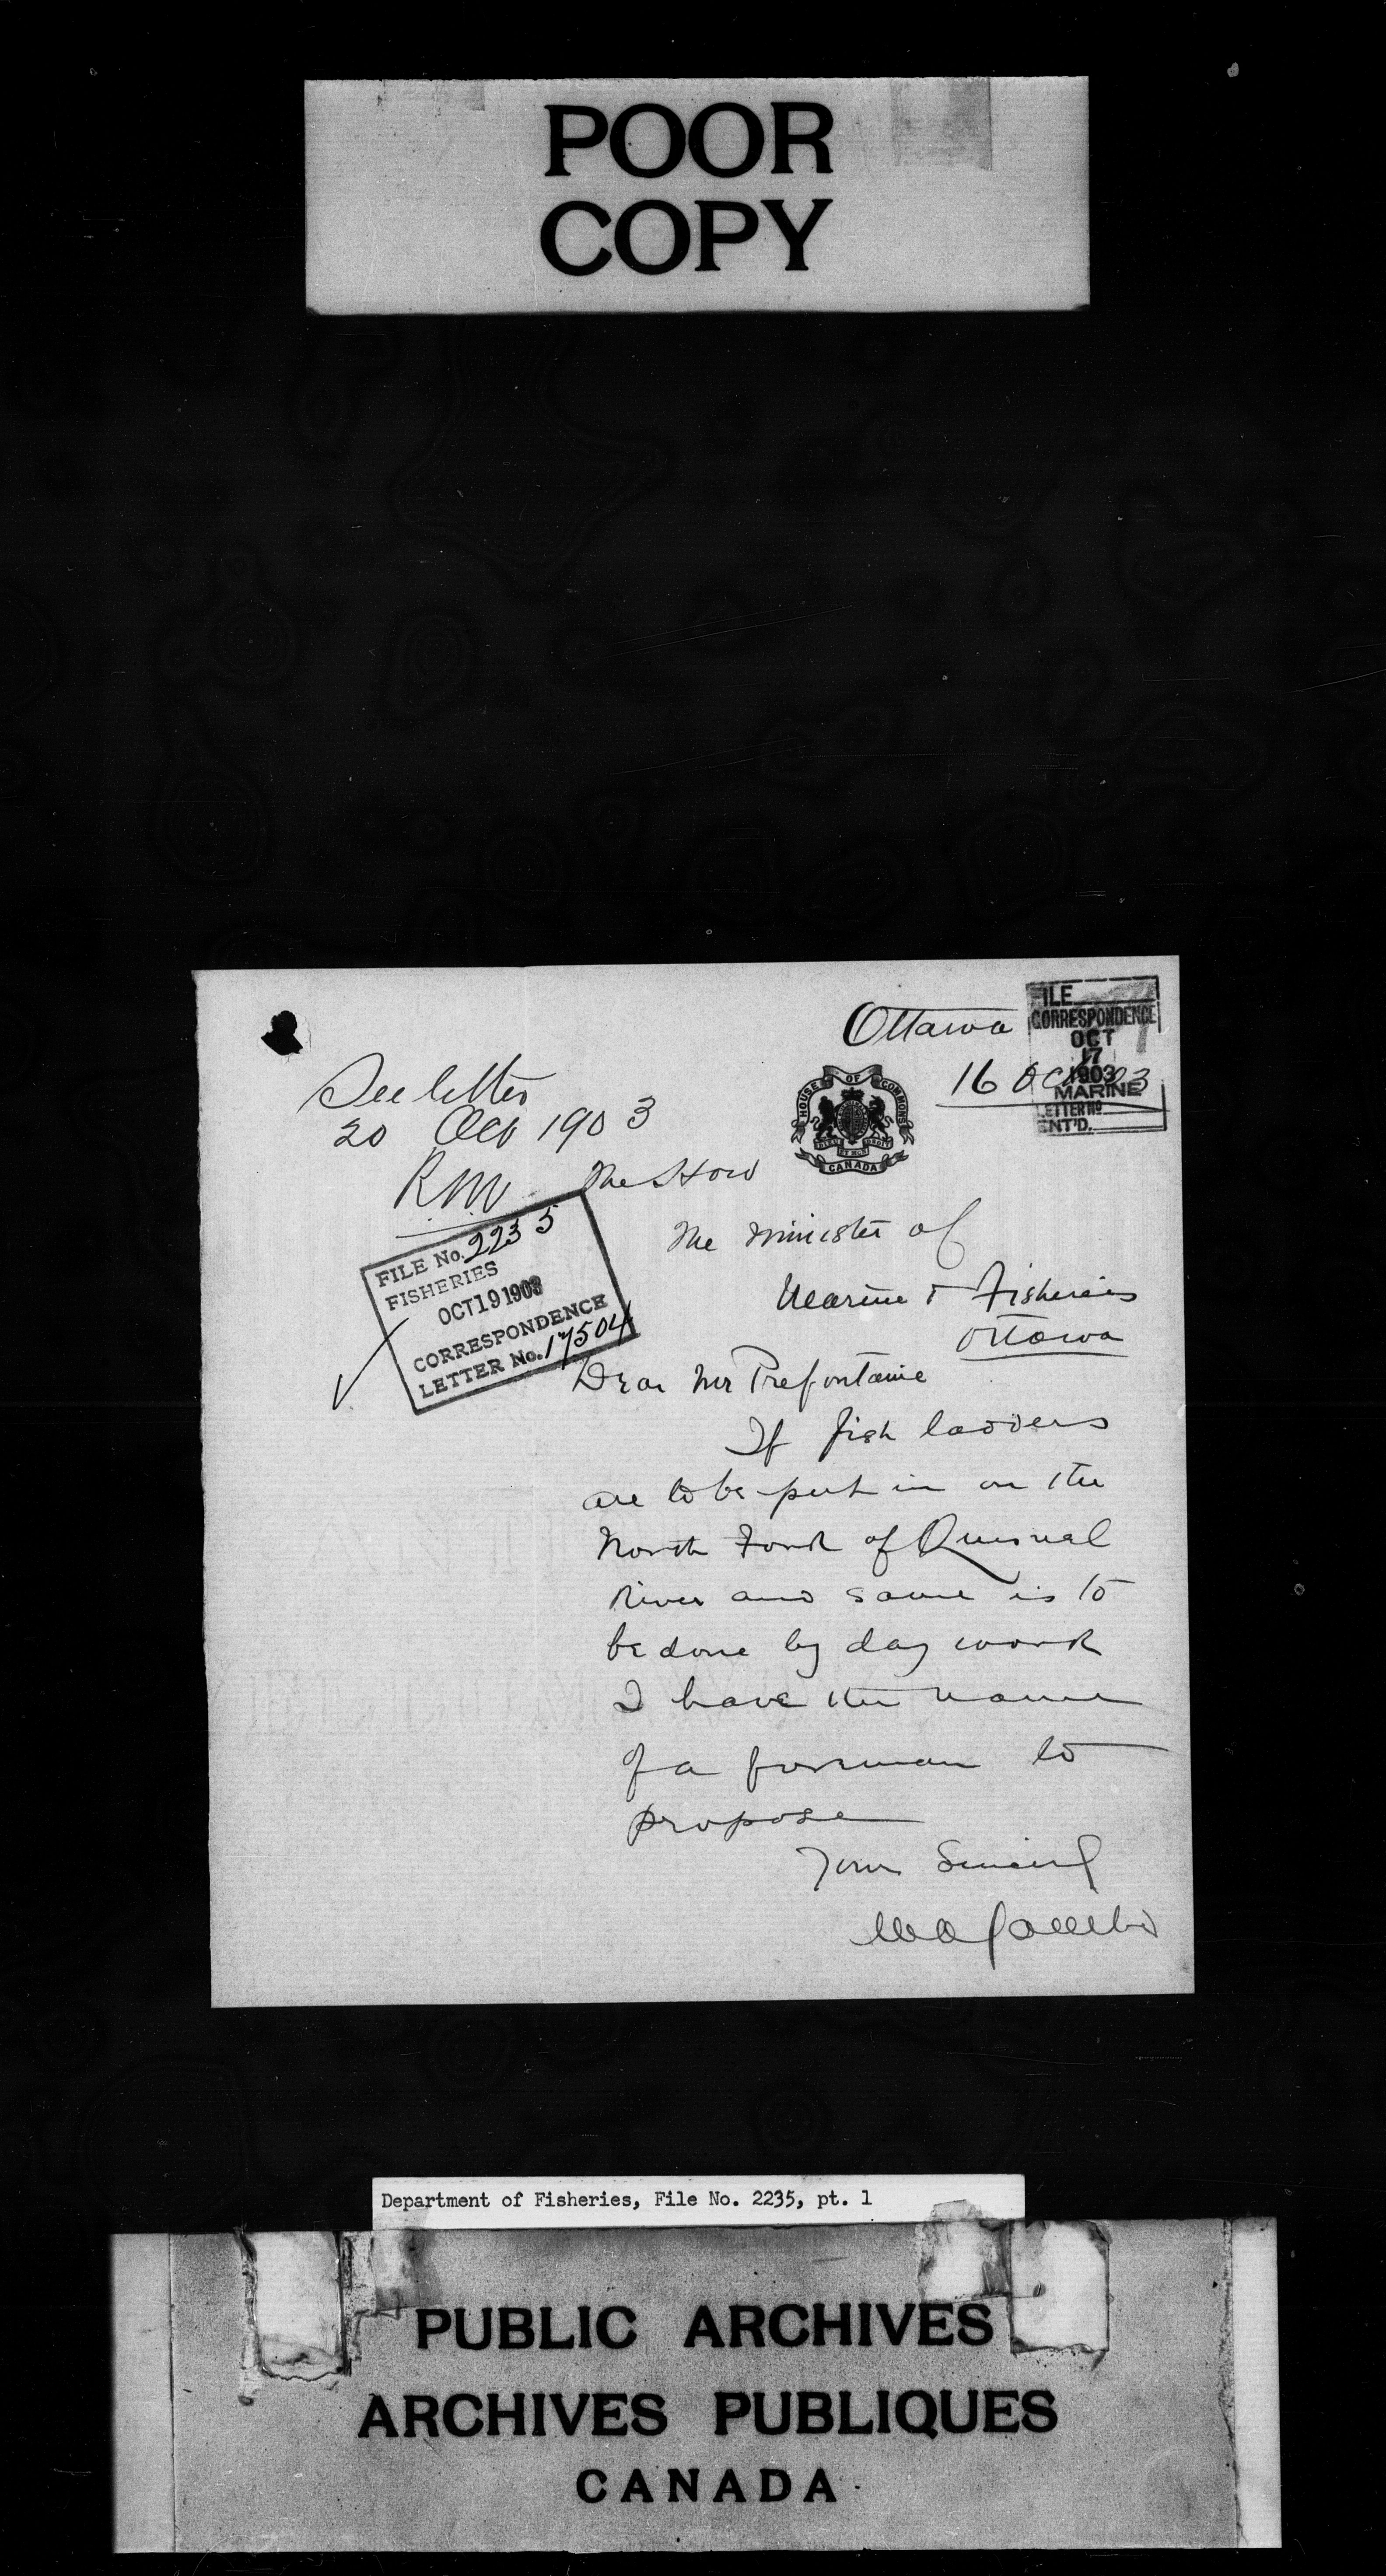 POOR
COPY
Ottawa
FILE
CORRESPONDENCE
OCT
17
1903
MARINE
LETTER No
ENT'D.
16 Oct 03
HOUSE OF COMMONS
DIEU ET MON DROIT
CANADA
See letter
20 Oct 1903
RM
The Hon
The Minister of
Marine & Fisheries
Ottawa
FILE No. 2235
FISHERIES
OCT 19 1903
CORRESPONDENCE
LETTER No. 17504
Dear Mr Prefontaine
If fish ladders
are to be put in on the
North Fork of Quesnel
River and same is to
be done by day work
I have the name
of a foreman to
propose
Yours Sincerely
Department of Fisheries, File No. 2235, pt. 1
PUBLIC ARCHIVES
ARCHIVES PUBLIQUES
CANADA